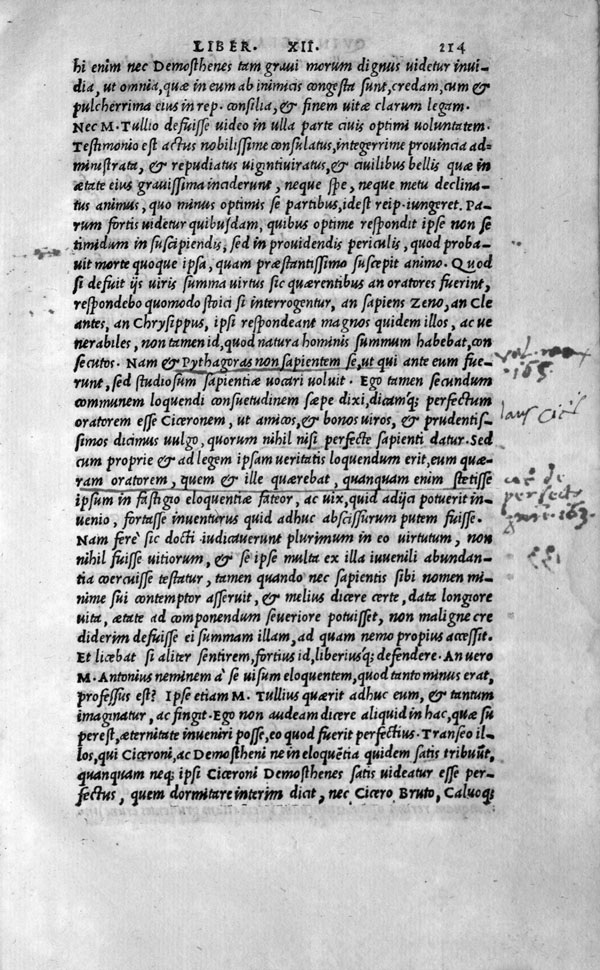 LIBER. XII. 214
hi enim nec Demosthenes tam graui morum dignus uidetur inui-
dia, ut omnia, quæ in eum ab inimicis congesta sunt, credam, cum &
pulcherrima eius in rep. consilia, & finem uitæ clarum legam.
Nec M. Tullio defuisse uideo in ulla parte ciuis optimi uoluntatem.
Testimonio est actus nobilissime consulatus, integerrime prouincia ad-
ministrata, & repudiatus uigintiuiratus, & ciuilibus bellis quæ in
ætate eius grauissima inciderunt, neque spe, neque metu declina-
tus animus, quo minus optimis se partibus, idest reip. iungeret. Pa-
rum fortis uidetur quibusdam, quibus optime respondit ipse non se
timidum in suscipiendis, sed in prouidendis periculis, quod proba-
uit morte quoque ipsa, quam præstantissimo suscepit animo. Quod
si defuit ijs uiris summa uirtus sic quærentibus an oratores fuerint,
respondebo quomodo stoici si interrogentur, an sapiens Zeno, an Cle
antes, an Chrysippus, ipsi respondeant magnos quidem illos, ac ue
nerabiles, non tamen id, quod natura hominis summum habebat, con
secutos. Nam & Pythagoras non sapientem se, ut qui ante eum fue-
runt, sed studiosum sapientiæ uocari uoluit. Ego tamen secundum
communem loquendi consuetudinem sæpe dixi, dicamq; perfectum
oratorem esse Ciceronem, ut amicos, & bonos uiros, & prudentis-
simos dicimus uulgo, quorum nihil nisi perfecte sapienti datur. Sed
cum proprie & ad legem ipsam ueritatis loquendum erit, eum quæ-
ram oratorem, quem & ille quærebat, quanquam enim stetisse
ipsum in fastigio eloquentiæ fateor, ac uix, quid adijci potuerit in-
uenio, fortasse inuenturus quid adhuc abscissurum putem fuisse.
Nam ferè sic docti iudicauerunt plurimum in eo uirtutum, non
nihil fuisse uitiorum, & se ipse multa ex illa iuuenili abundan-
tia coercuisse testatur, tamen quando nec sapientis sibi nomen mi-
nime sui contemptor asseruit, & melius dicere certe, data longiore
uita, ætate ad componendum seueriore potuisset, non maligne cre
diderim defuisse ei summam illam, ad quam nemo propius accessit.
Et licebat si aliter sentirem, fortius id, liberiusq; defendere. An uero
M. Antonius neminem à se uisum eloquentem, quod tanto minus erat,
professus est? Ipse etiam M. Tullius quærit adhuc eum, & tantum
imaginatur, ac fingit. Ego non audeam dicere aliquid in hac, quæ su
perest, æternitate inueniri posse, eo quod fuerit perfectius. Transeo il-
los, qui Ciceroni, ac Demostheni ne in eloquẽtia quidem satis tribuũt,
quanquam neq; ipsi Ciceroni Demosthenes satis uideatur esse per-
fectus, quem dormitare interim dicit, nec Cicero Bruto, Caluoq;